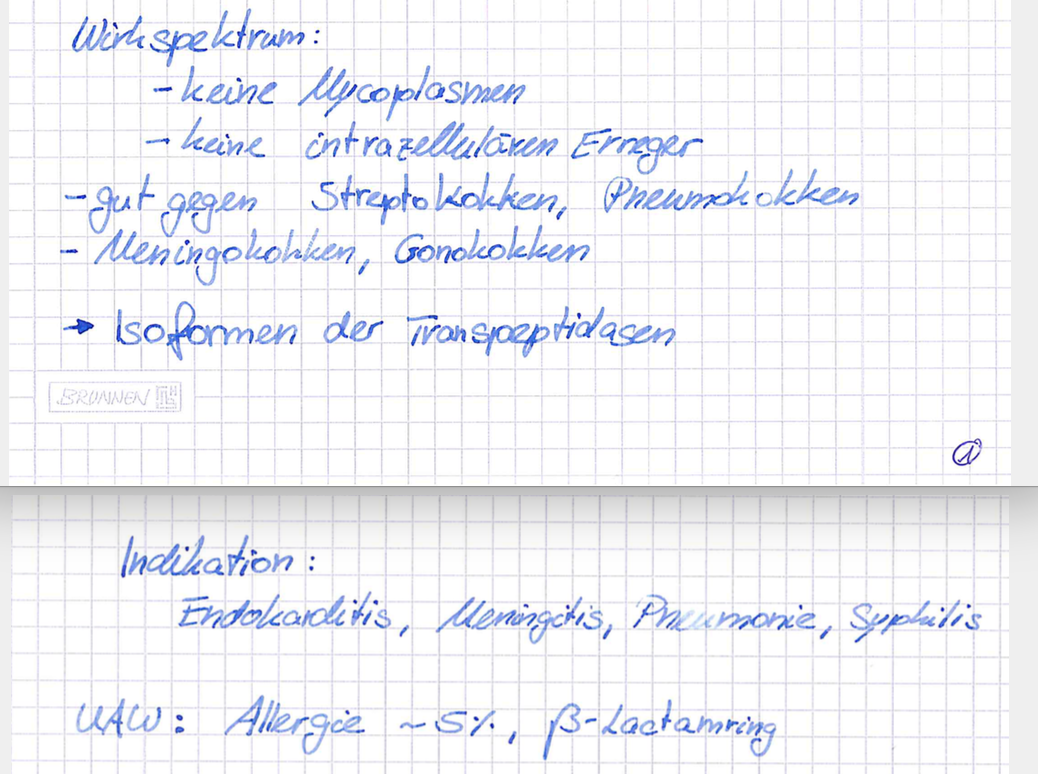 Wirkspektrum:
- keine Mycoplasmen
- keine intrazellulären Erreger
- gut gegen Streptokokken, Pneumokokken
- Meningokokken, Gonokokken
→ Isoformen der Transpeptidasen
BRUNNEN
1
Indikation:
Endokarditis, Meningitis, Pneumonie, Syphilis
UAW: Allergie ~5%, β-Lactamring